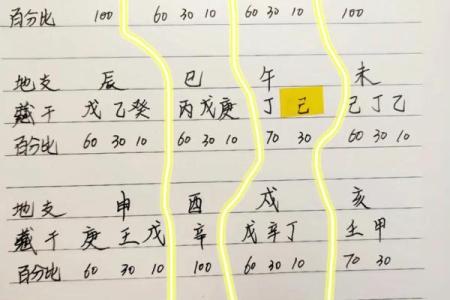 百分比 100 60 30 10 60 30 10 100
地支 辰 巳 午 未
藏干 戊乙癸 丙戊庚 丁己 己丁乙
百分比 60 30 10 60 30 10 70 30 60 30 10
地支 申 酉 戌 亥
藏干 庚壬戊 辛 戊辛丁 壬甲
百分比 60 30 10 100 60 30 10 70 30